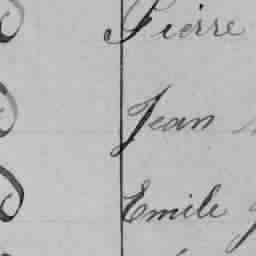 Pierre
Jean
Emile